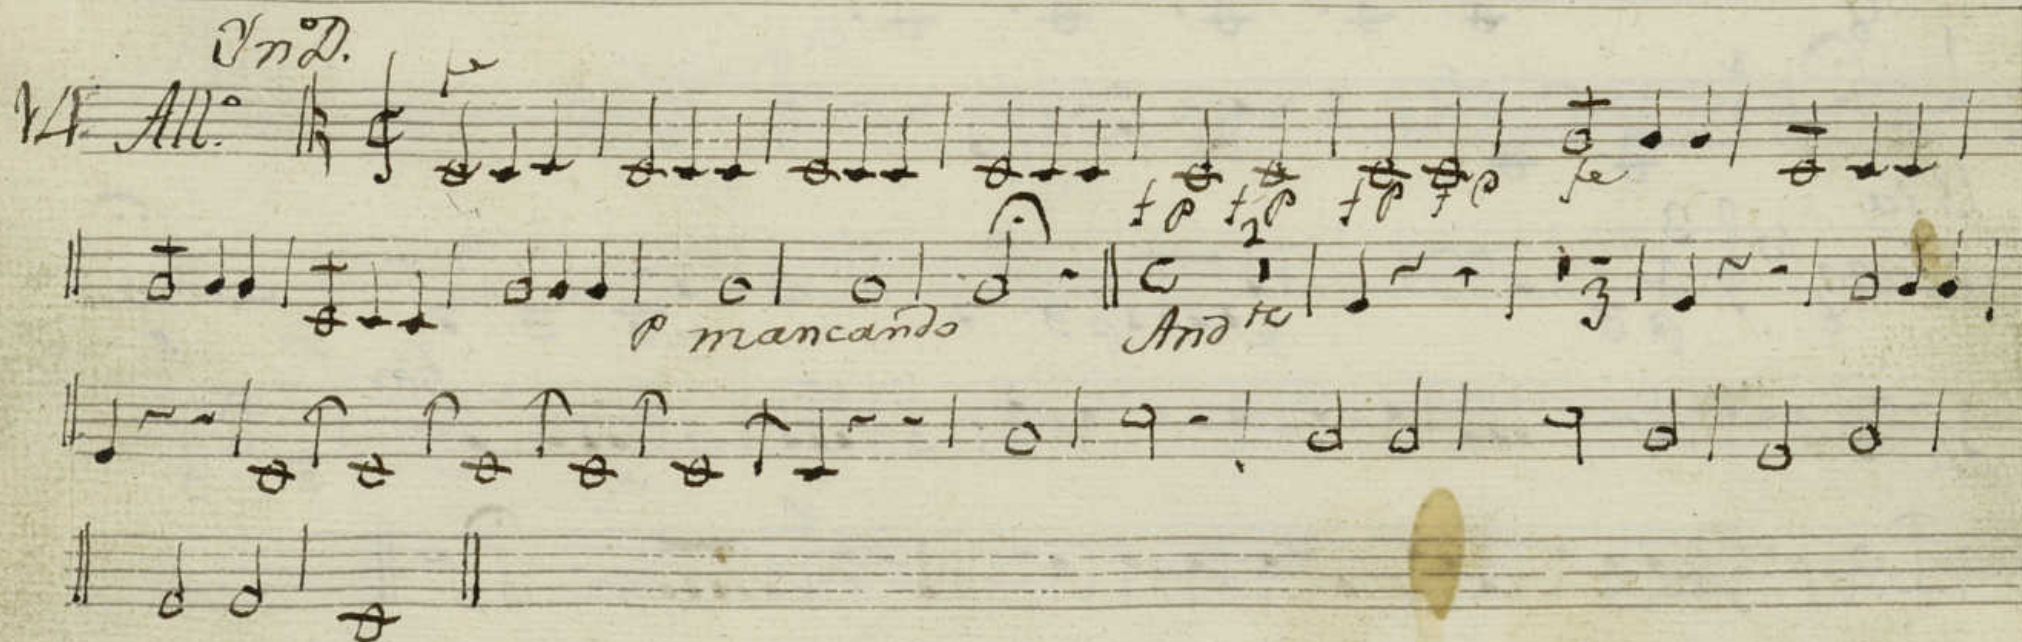 In D.
All.º fe
f P f P f P f P fe
2
P mancando And.te 3